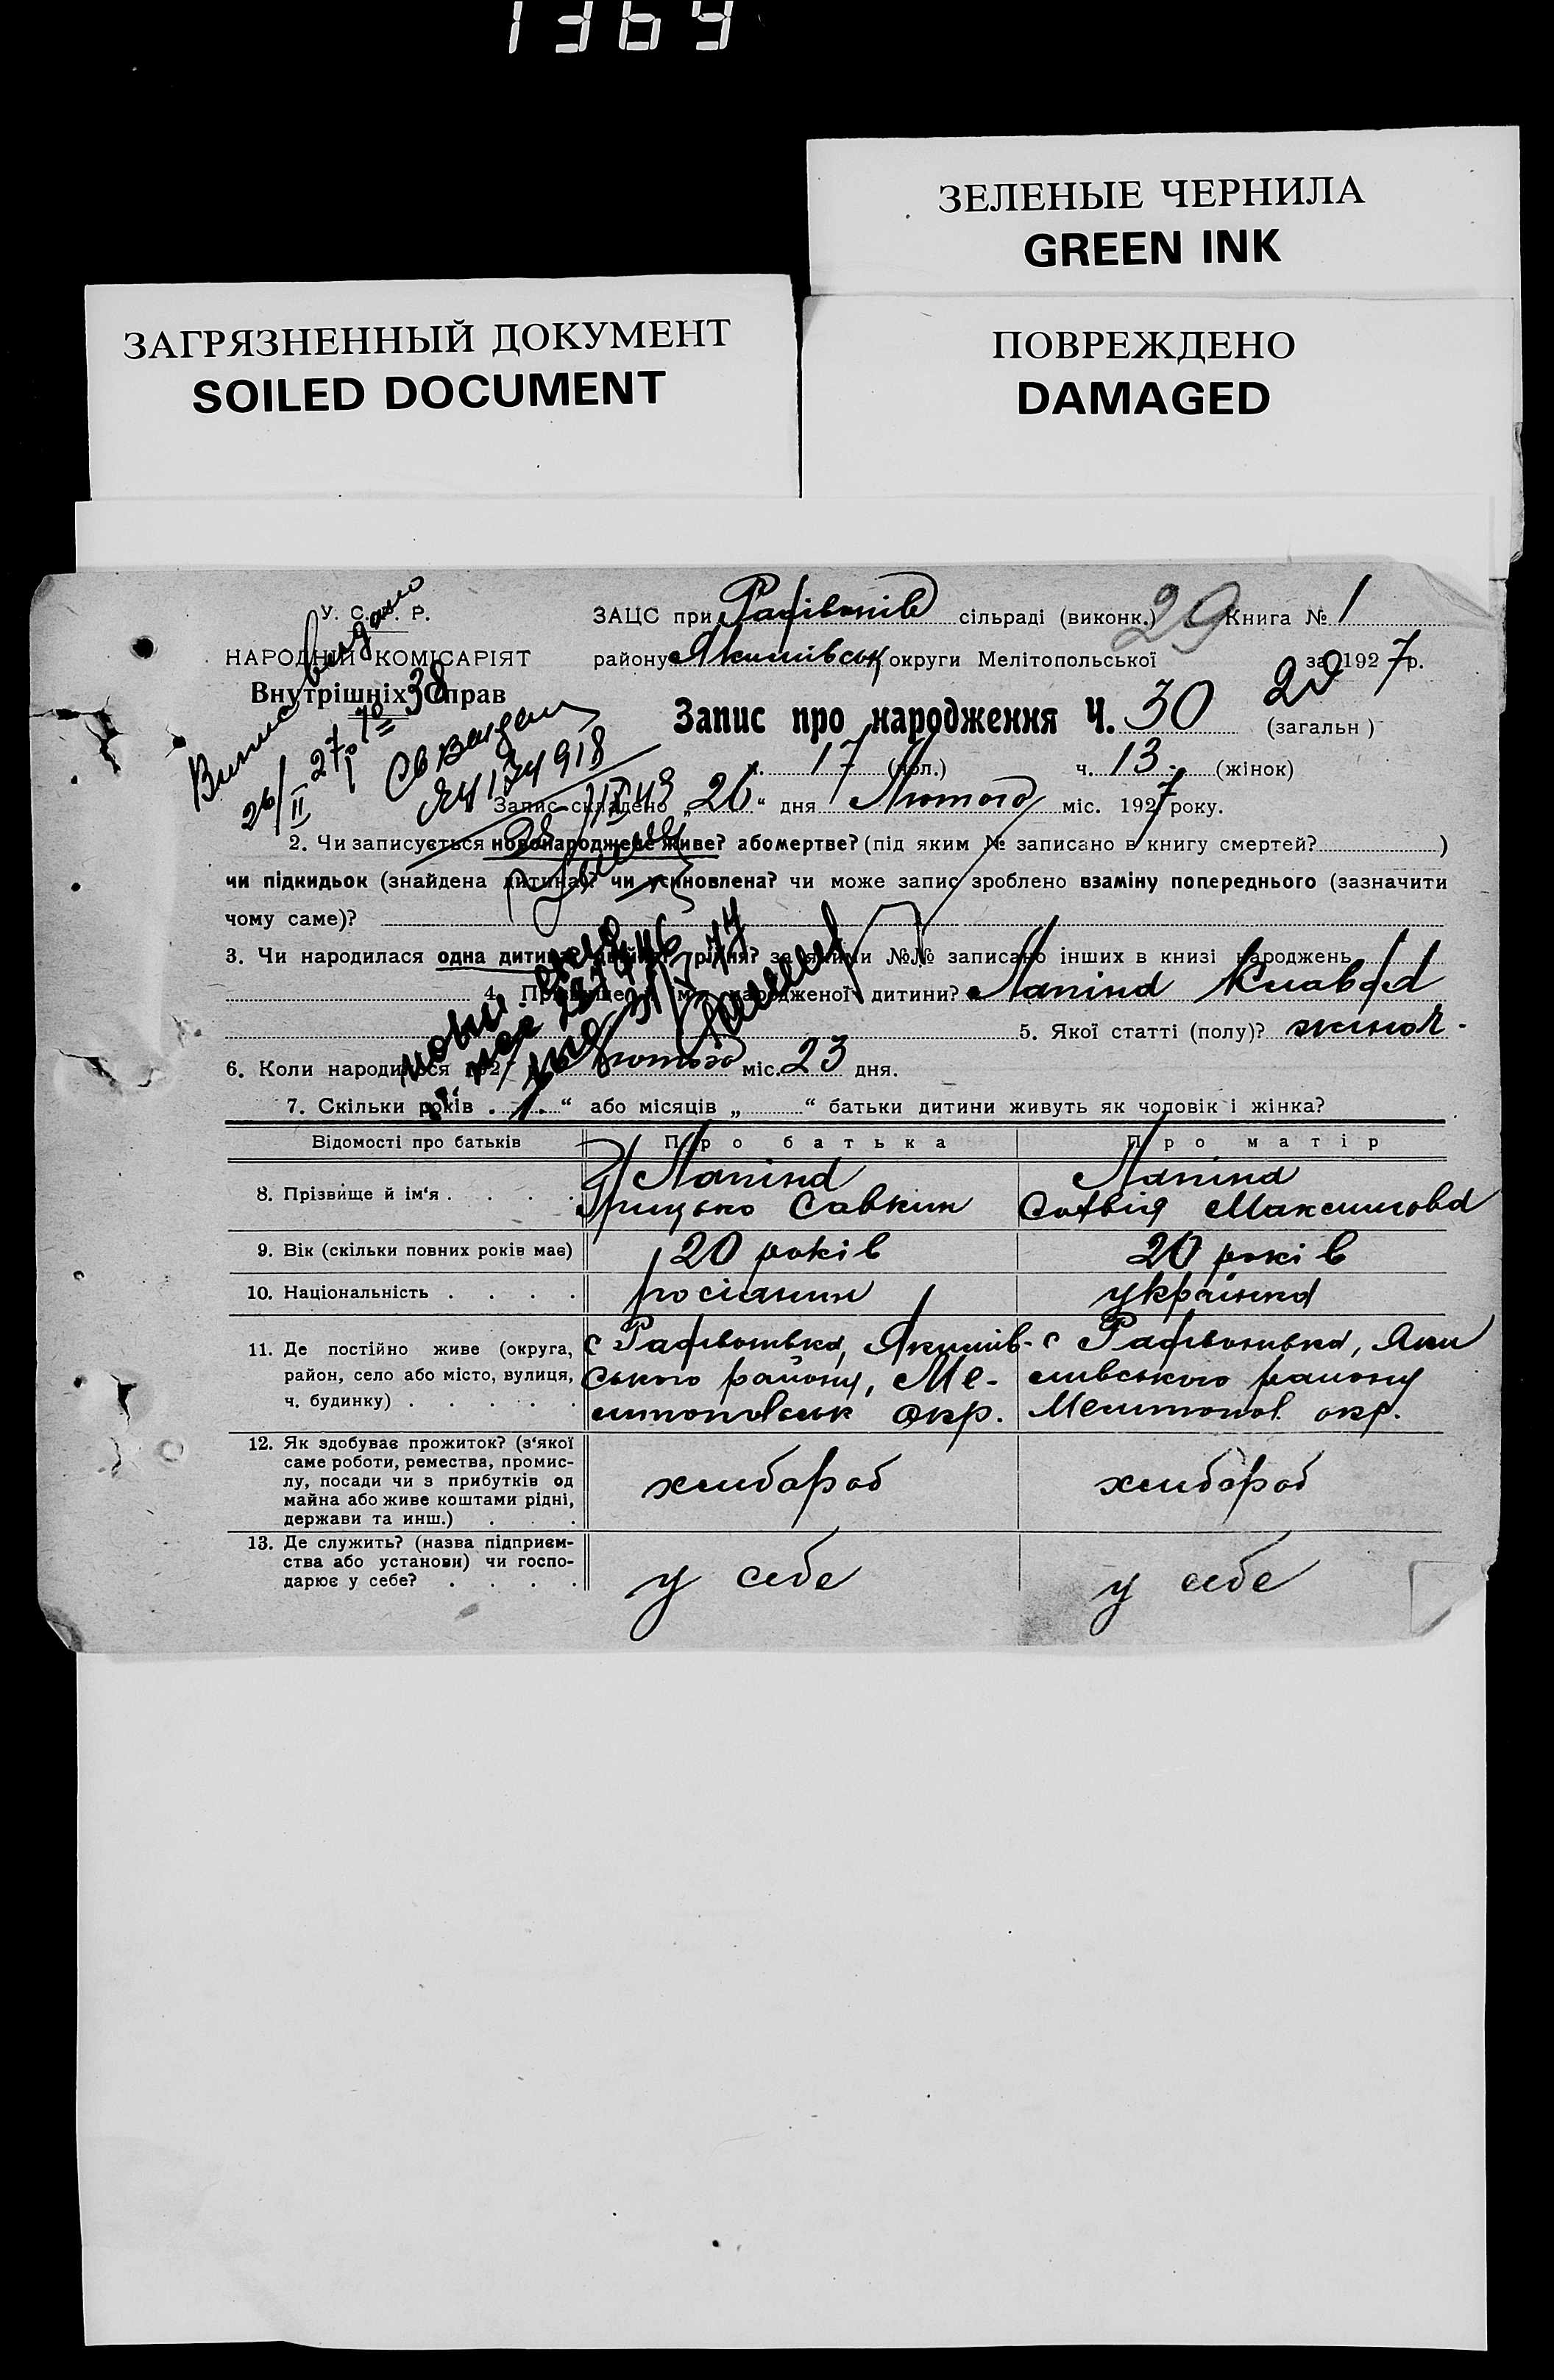 1369
ЗЕЛЕНЫЕ ЧЕРНИЛА
GREEN INK
ЗАГРЯЗНЕННЫЙ ДОКУМЕНТ
SOILED DOCUMENT
ПОВРЕЖДЕНО
DAMAGED
У. С. Р. Р.
НАРОДНІЙ КОМІСАРІЯТ
Внутрішніх Справ
38
26/II 27р.
ЯЧ 174918
ЗАЦС при Рафівонів сільраді (виконк.) 29 Книга № 1
району Якимівськ округи Мелітопольської за 1927 р.
Запис про народження Ч. 30 (загальн)
ч. 17 (чол.) ч. 13 (жінок)
Запис складено „26“ дня Лютого міс. 1927 року.
2. Чи записується новонароджене живе? або мертве? (під яким № записано в книгу смертей? )
чи підкидьок (знайдена дитина)? чи усиновлена? чи може запис зроблено взаміну попереднього (зазначити
чому саме)?
3. Чи народилася одна дитина, двійня, трійня? за якими №№ записано інших в книзі народжень
4. Прізвище й ім'я народженої дитини? Лапіна Клавдія
5. Якої статті (полу)? жіноч.
6. Коли народилося 1927 р. Лютого міс. 23 дня.
7. Скільки років „1“ або місяців „ “ батьки дитини живуть як чоловік і жінка?
Відомості про батьків Про батька Про матір
8. Прізвище й ім'я . . . . Лапіна Грицько Савкин Лапіна Максимова
9. Вік (скільки повних років має) 20 років 20 років
10. Національність . . . . росіянин українка
11. Де постійно живе (округа,
район, село або місто, вулиця,
ч. будинку) . . . . .
с Рафівонівка, Якимів-
ського району, Ме-
літопольськ окр.
с Рафівонівка, Яки
мівського району
Мелітопол. окр.
12. Як здобуває прожиток? (з'якої
саме роботи, ремества, промис-
лу, посади чи з прибутків од
майна або живе коштами рідні,
держави та инш.) . . .
хлібороб хлібороб
13. Де служить? (назва підприєм-
ства або установи) чи госпо-
дарює у себе? . . . .
у себе у себе